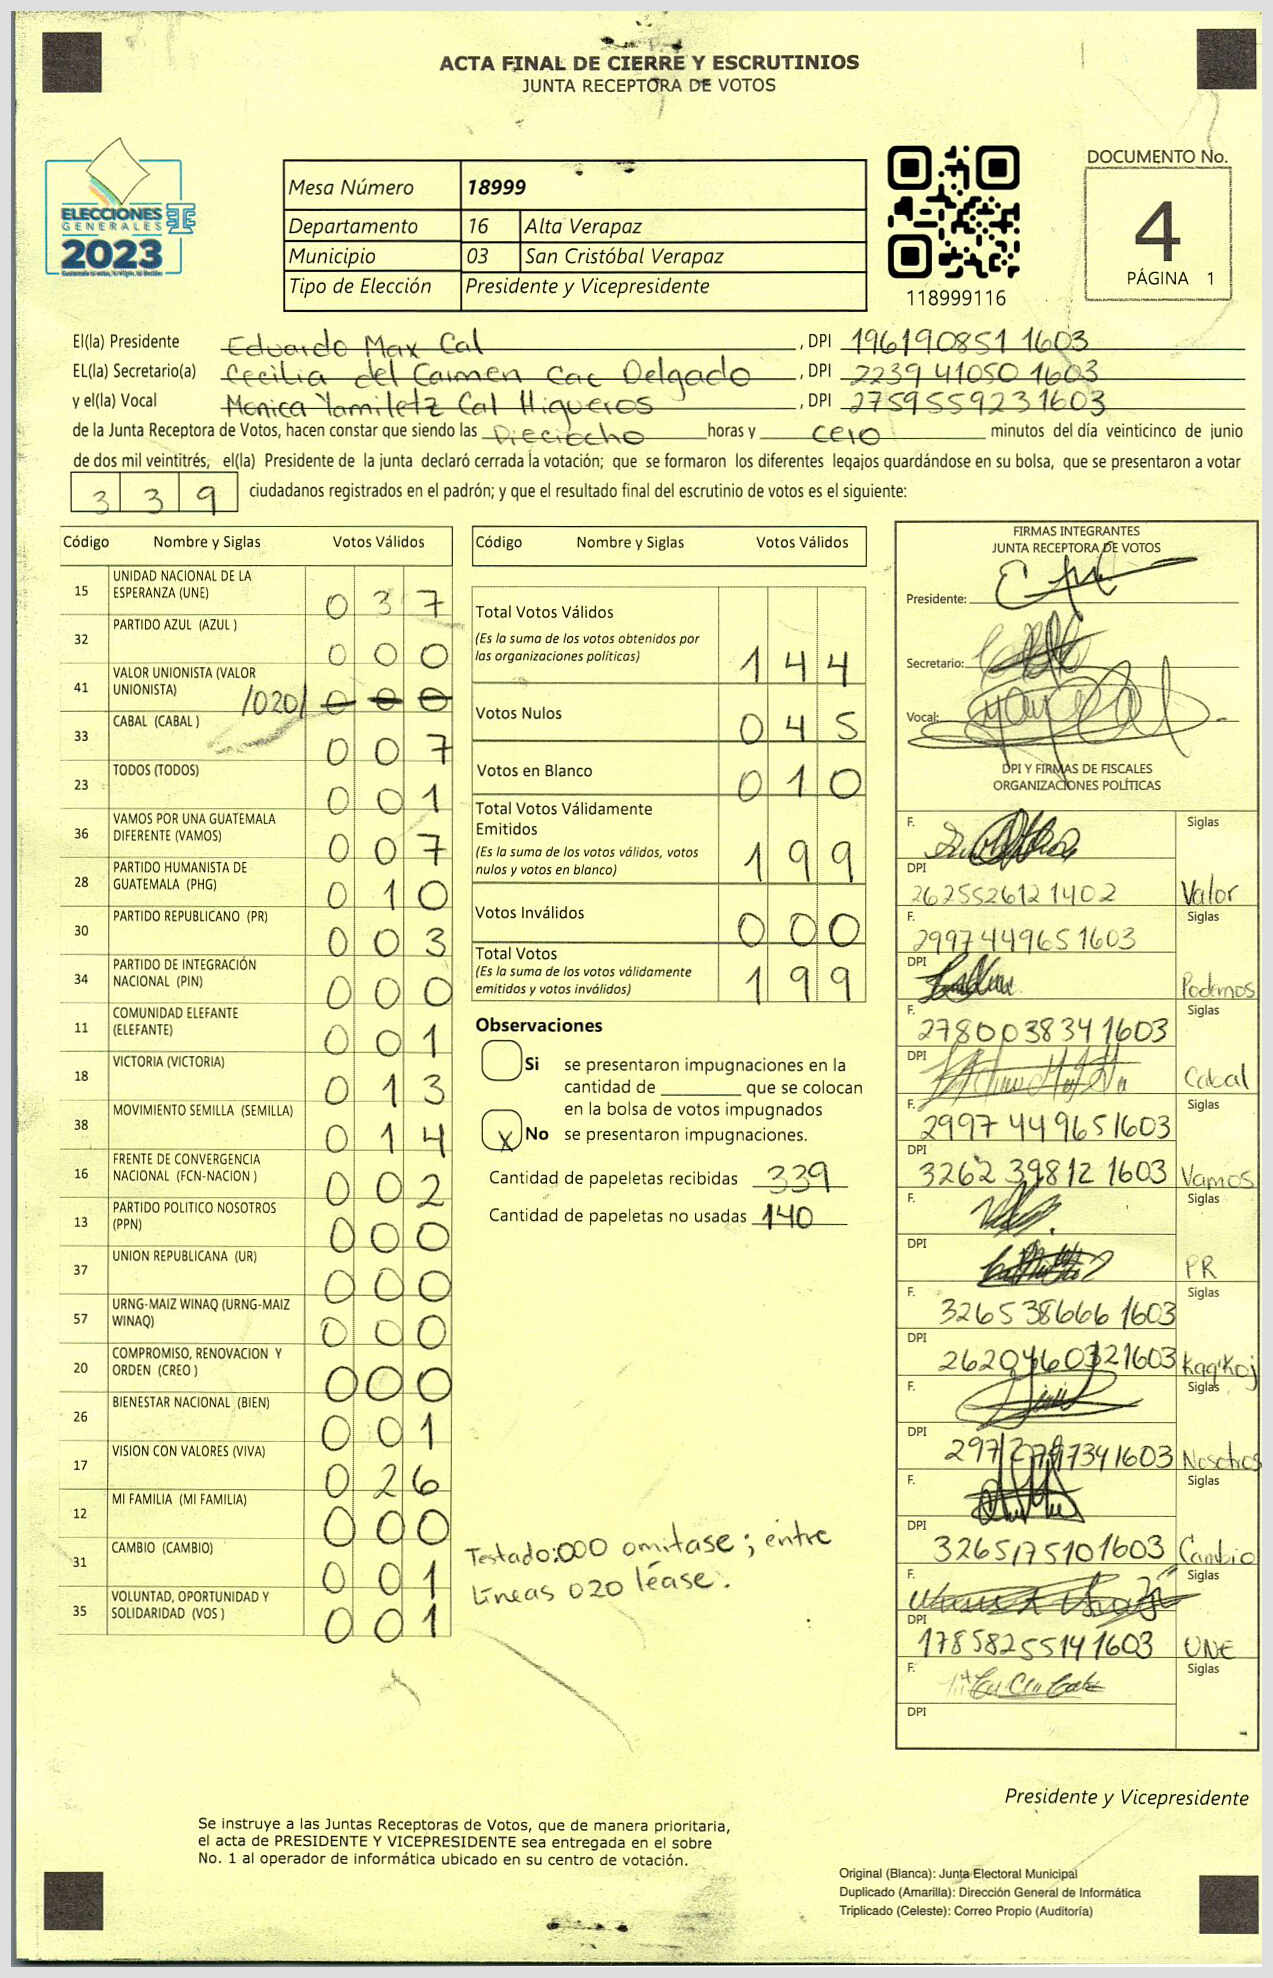 ACTA FINAL DE CIERRE Y ESCRUTINIOS
JUNTA RECEPTORA DE VOTOS
ELECCIONES
GENERALES
2023
Mesa Número 18999
Departamento 16 Alta Verapaz
Municipio 03 San Cristóbal Verapaz
Tipo de Elección Presidente y Vicepresidente
118999116
DOCUMENTO No.
4
PÁGINA 1
El(la) Presidente Eduardo Max Cal , DPI 196190851 1603
EL(la) Secretario(a) Cecilia del Carmen Cac Delgado , DPI 2239 41050 1603
y el(la) Vocal Monica Yamiletz Cal Higueros , DPI 2759559231603
de la Junta Receptora de Votos, hacen constar que siendo las Dieciocho horas y cero minutos del día veinticinco de junio
de dos mil veintitrés, el(la) Presidente de la junta declaró cerrada la votación; que se formaron los diferentes legajos guardándose en su bolsa, que se presentaron a votar
339 ciudadanos registrados en el padrón; y que el resultado final del escrutinio de votos es el siguiente:
Código Nombre y Siglas Votos Válidos
15 UNIDAD NACIONAL DE LA ESPERANZA (UNE) 037
32 PARTIDO AZUL (AZUL ) 000
41 VALOR UNIONISTA (VALOR UNIONISTA) /020/ 000
33 CABAL (CABAL ) 007
23 TODOS (TODOS) 001
36 VAMOS POR UNA GUATEMALA DIFERENTE (VAMOS) 007
28 PARTIDO HUMANISTA DE GUATEMALA (PHG) 010
30 PARTIDO REPUBLICANO (PR) 003
34 PARTIDO DE INTEGRACIÓN NACIONAL (PIN) 000
11 COMUNIDAD ELEFANTE (ELEFANTE) 001
18 VICTORIA (VICTORIA) 013
38 MOVIMIENTO SEMILLA (SEMILLA) 014
16 FRENTE DE CONVERGENCIA NACIONAL (FCN-NACION ) 002
13 PARTIDO POLITICO NOSOTROS (PPN) 000
37 UNION REPUBLICANA (UR) 000
57 URNG-MAIZ WINAQ (URNG-MAIZ WINAQ) 000
20 COMPROMISO, RENOVACION Y ORDEN (CREO ) 000
26 BIENESTAR NACIONAL (BIEN) 001
17 VISION CON VALORES (VIVA) 026
12 MI FAMILIA (MI FAMILIA) 000
31 CAMBIO (CAMBIO) 001
35 VOLUNTAD, OPORTUNIDAD Y SOLIDARIDAD (VOS ) 001
Código Nombre y Siglas Votos Válidos
Total Votos Válidos 144
(Es la suma de los votos obtenidos por
las organizaciones políticas)
Votos Nulos 045
Votos en Blanco 010
Total Votos Válidamente
Emitidos 199
(Es la suma de los votos válidos, votos
nulos y votos en blanco)
Votos Inválidos 000
Total Votos 199
(Es la suma de los votos válidamente
emitidos y votos inválidos)
Observaciones
Si se presentaron impugnaciones en la
cantidad de ________ que se colocan
en la bolsa de votos impugnados
x No se presentaron impugnaciones.
Cantidad de papeletas recibidas 339
Cantidad de papeletas no usadas 140
Testado:000 omitase ; entre
lineas 020 léase.
FIRMAS INTEGRANTES
JUNTA RECEPTORA DE VOTOS
Presidente:
Secretario:
Vocal:
DPI Y FIRMAS DE FISCALES
ORGANIZACIONES POLÍTICAS
F. Siglas
DPI
262552612 1402 Valor
F. Siglas
2997 44965 1603
DPI Podemos
F. Siglas
278003834 1603
DPI Cabal
F. Siglas
2997 44965 1603
DPI
3262 39812 1603 Vamos
F. Siglas
DPI PR
F. Siglas
326538666 1603
DPI
Kaq'Koj
F. Siglas
DPI
Nosotros
F. Siglas
DPI
3265175101603 Cambio
F. Siglas
DPI
1785825514 1603 UNE
F. Siglas
DPI
Presidente y Vicepresidente
Se instruye a las Juntas Receptoras de Votos, que de manera prioritaria,
el acta de PRESIDENTE Y VICEPRESIDENTE sea entregada en el sobre
No. 1 al operador de informática ubicado en su centro de votación.
Original (Blanca): Junta Electoral Municipal
Duplicado (Amarilla): Dirección General de Informática
Triplicado (Celeste): Correo Propio (Auditoría)